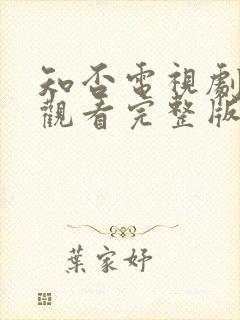 知否電視劇
觀看完整版
葉家妤